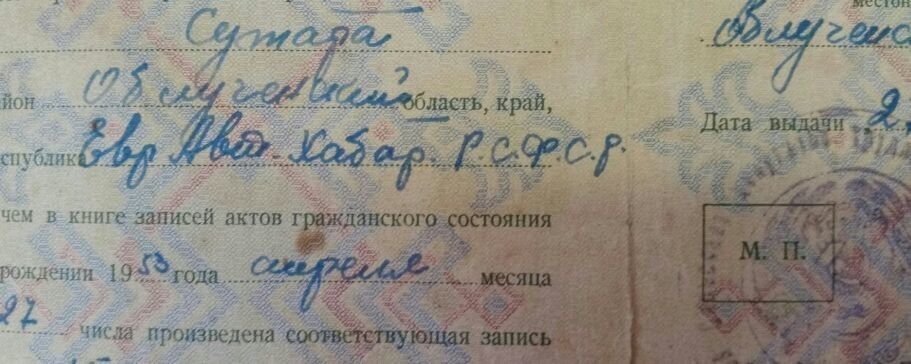 Сутара
Облучен
йон Облученский область, край,
Дата выдачи 2
еспублика Евр Авт. Хабар. Р.С.Ф.С.Р.
чем в книге записей актов гражданского состояния
М. П.
рождении 1953 года апреля месяца
27 числа произведена соответствующая запись